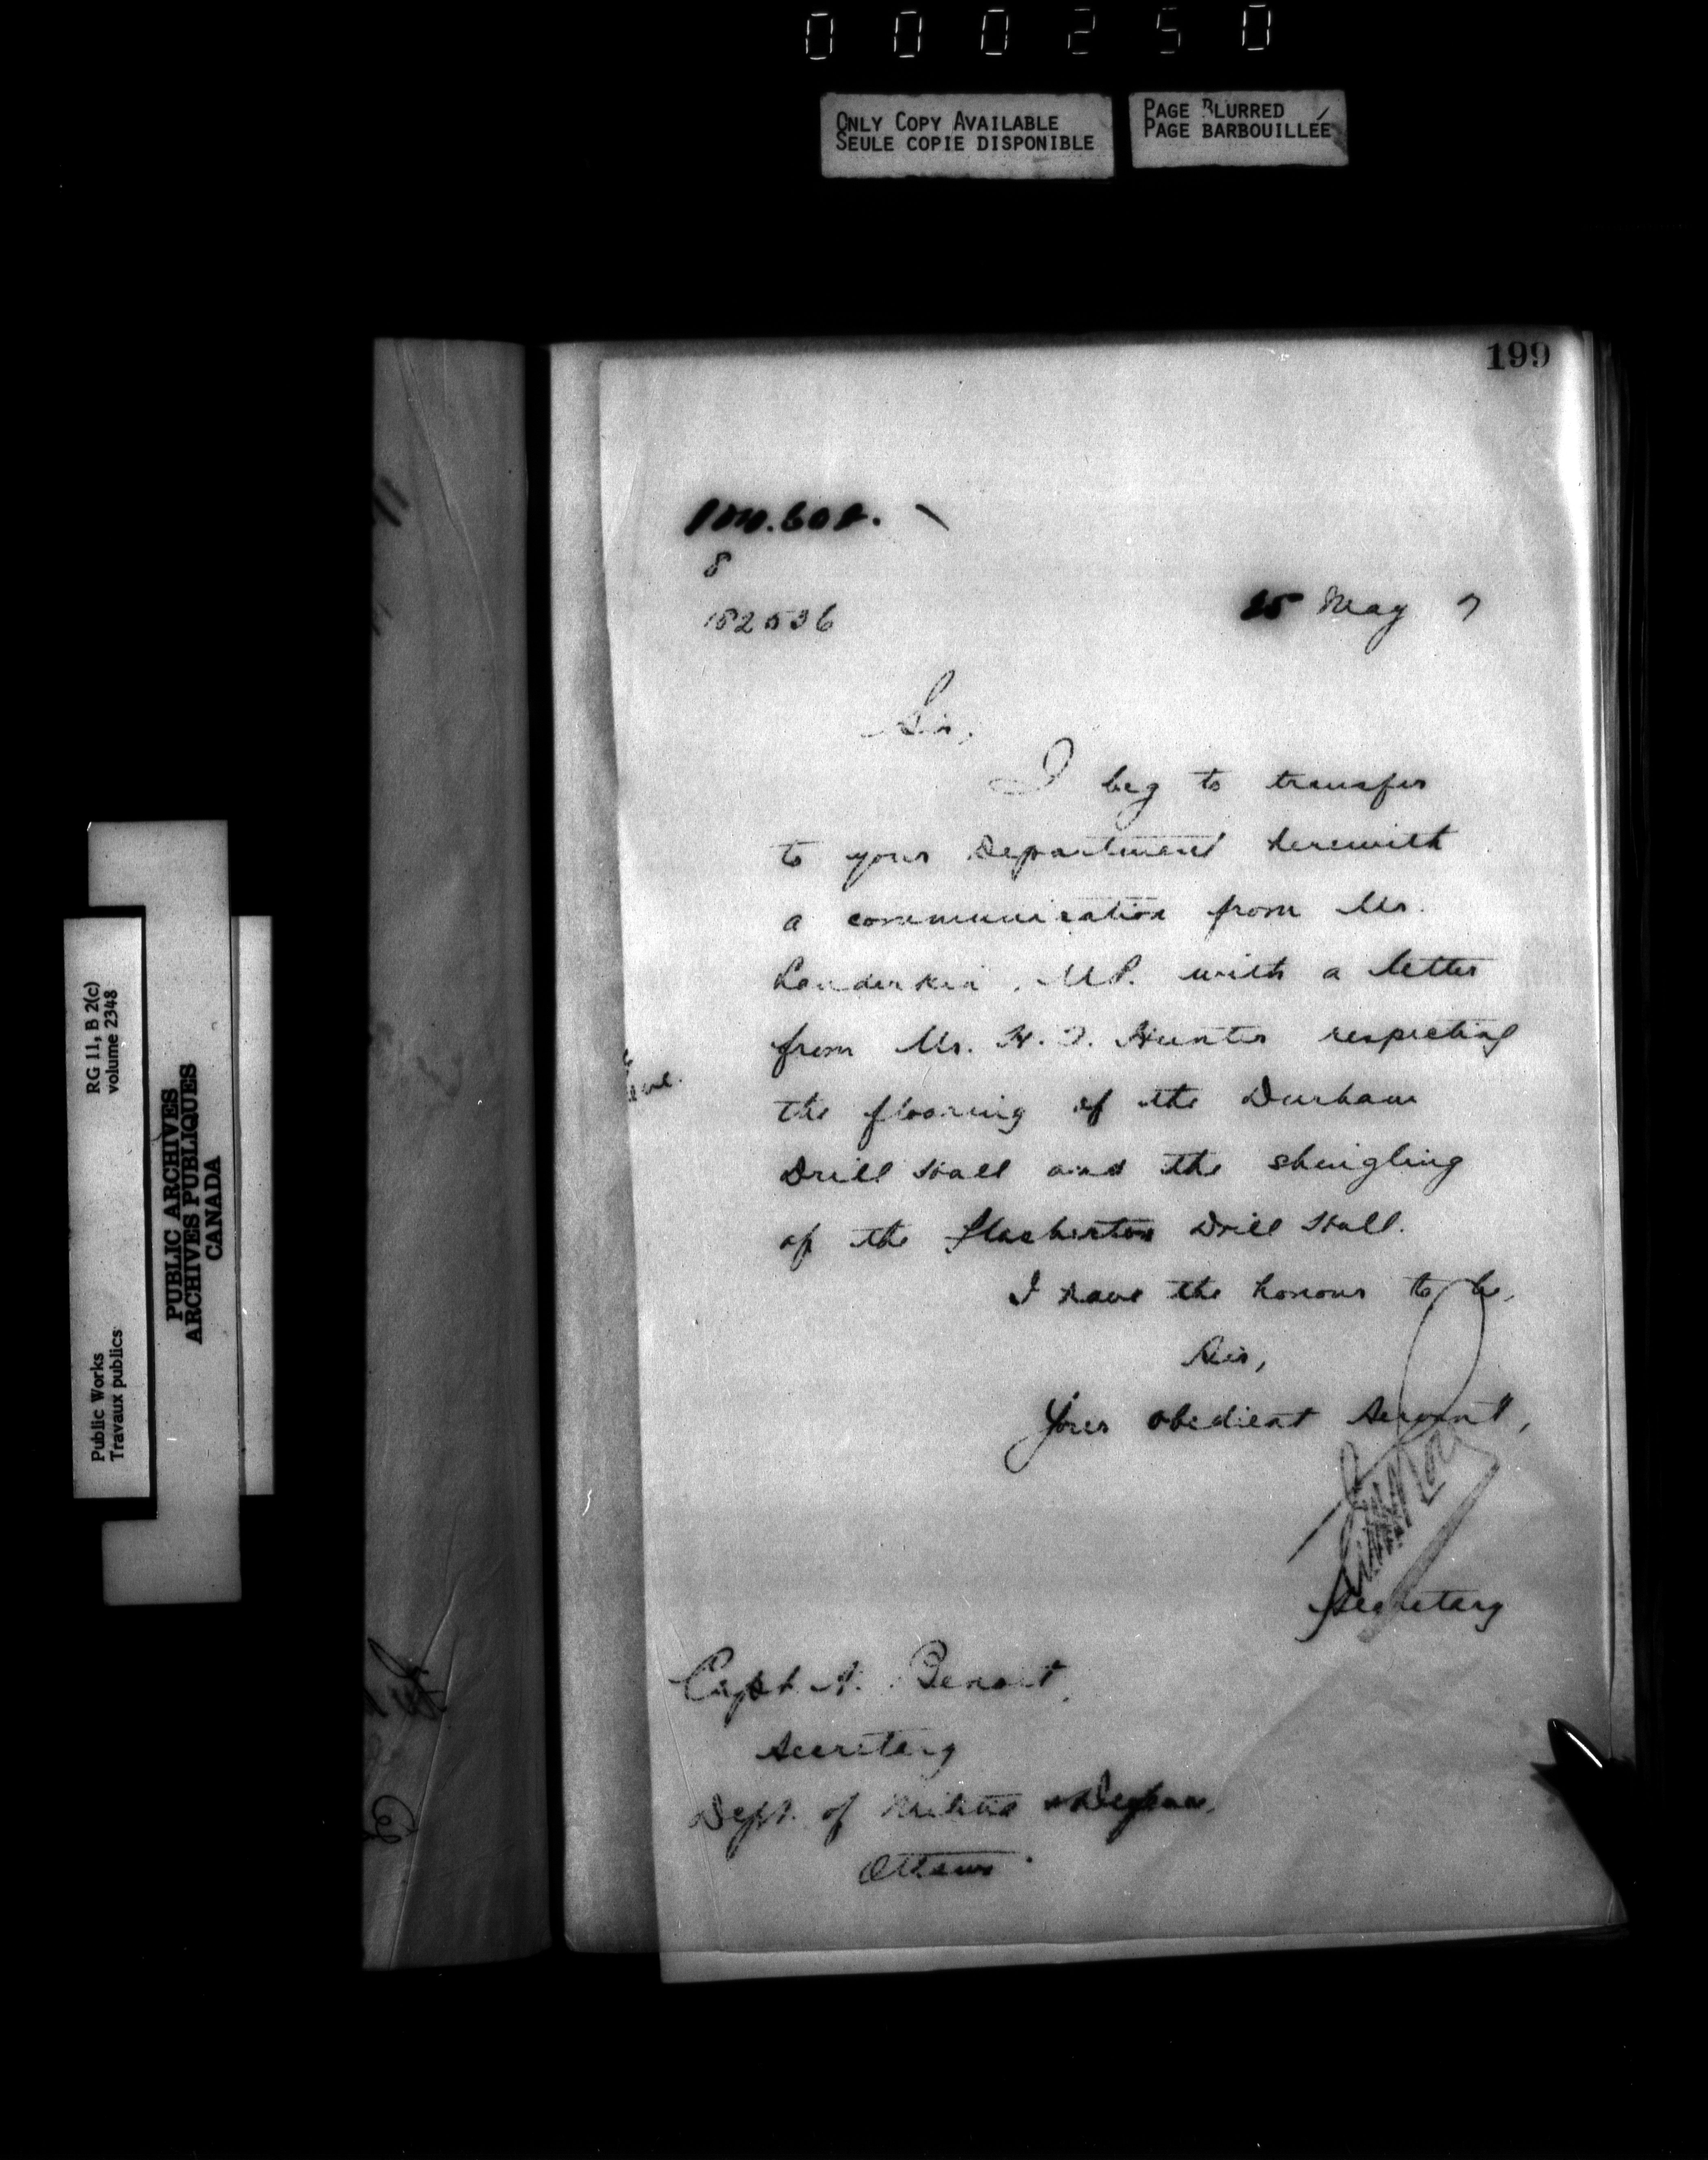 000250
ONLY COPY AVAILABLE
SEULE COPIE DISPONIBLE
PAGE BLURRED
PAGE BARBOUILLÉE
199
8
182536
25 May 7
Sir,
I beg to transfer
to your Department herewith
a communication from Mr.
Landerkin, M.P. with a letter
from Mr. H. J. Hunter respecting
the flooring of the Durham
Drill Hall and the shingling
of the Flesherton Drill Hall.
I have the honour to be,
Sir,
Your obedient Servant,
Secretary
Capt. A. Benoit,
Secretary
Dept. of Militia & Defence,
Ottawa.
Public Works
Travaux publics
RG 11, B 2(c)
volume 2348
PUBLIC ARCHIVES
ARCHIVES PUBLIQUES
CANADA